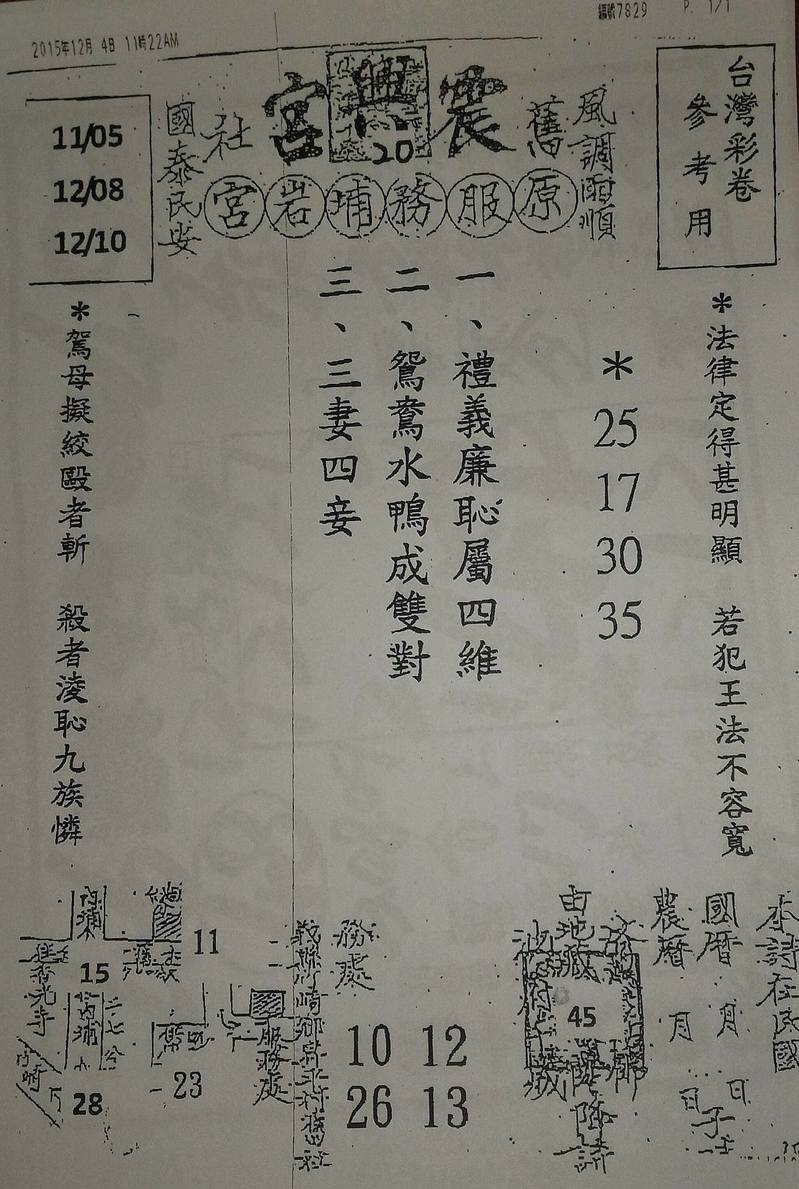 2015年12月 4日 11時22AM
編號7829
P. 1/1
台灣彩卷
參考用
風調雨順
舊
震興宮
20
社
國泰民安
原服務埔岩宮
11/05
12/08
12/10
*法律定得甚明顯 若犯王法不容寬
* 25 17 30 35
一、禮義廉恥屬四維
二、鴛鴦水鴨成雙對
三、三妻四妾
*駕母擬絞毆者斬 殺者淩恥九族憐
本詩在民國
國曆 月 日
農曆 月 日
由地藏
降詩
45
務處
10 12
26 13
服務處
11
15
23
28
內埔
香光寺